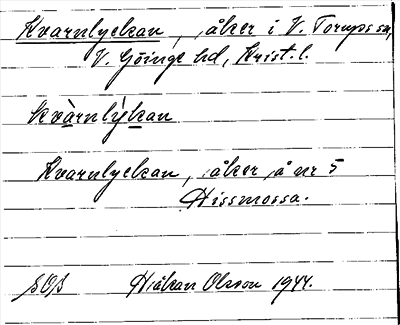 Kvarnlyckan, åker i V. Torups sn,
V. Göinge hd, Krist. l.
kvàrnlýkan
Kvarnlyckan, åker å nr 5
Hissmossa.
Håkan Olsson 1944.